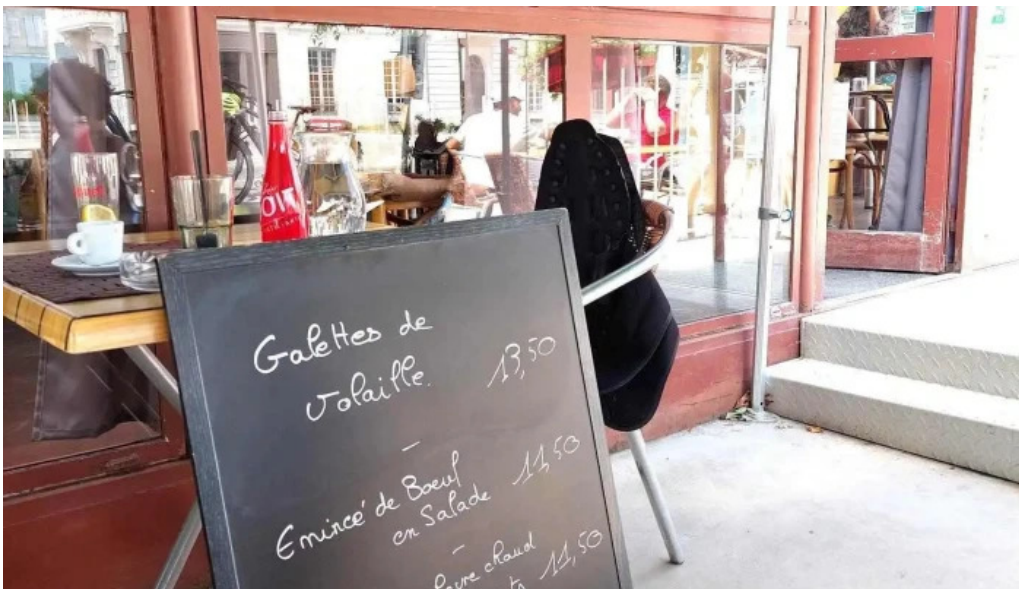 Galettes de
Volaille. 13,50
–
Emincé de Boeuf 11,50
en Salade
–
chaud 11,50